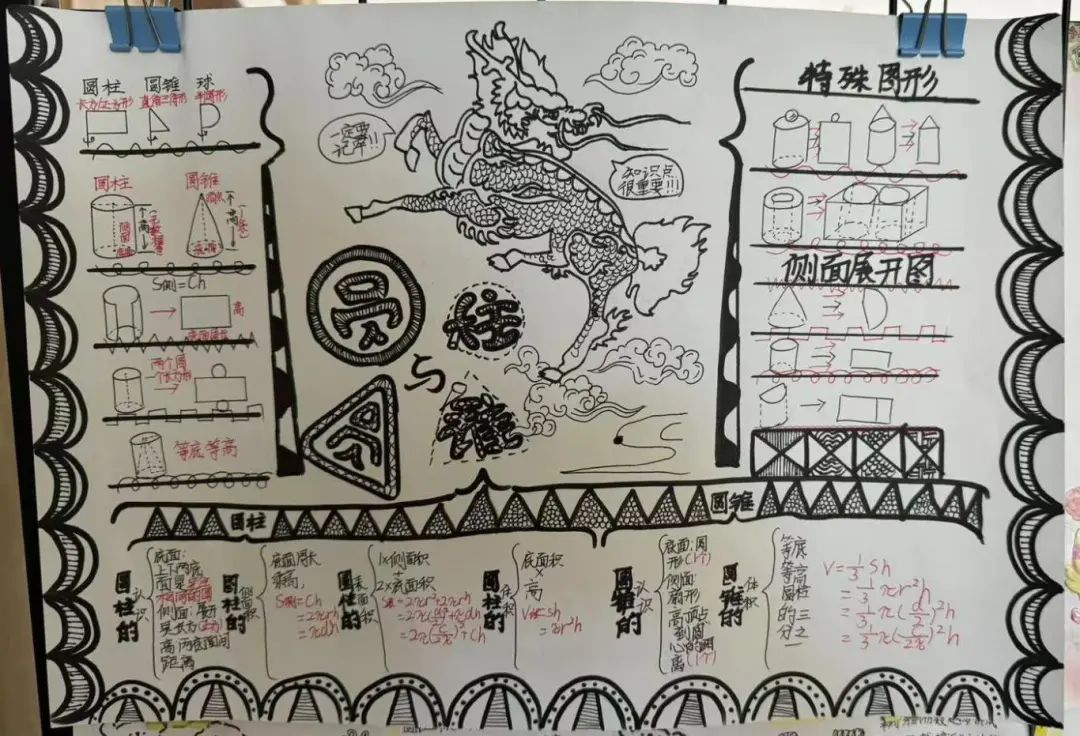 圆柱 圆锥 球
长方/正方形 直角三角形 半圆形
圆柱 圆锥
高
侧面
底面
高
底面
S侧=Ch
高
底面周长
两个圆
一个长方形
等底等高
一定要
记牢!!
知识点
很重要!!!
圆柱
与
圆锥
特殊图形
侧面展开图
圆柱
圆锥
圆柱的
认识
底面:
上下两底
面是完全
相同的圆
侧面:展开
是长方(正方)
高:两底面间
距离
圆柱的
侧面积
底面周长
乘高
S侧=Ch
=2πrh
=πdh
圆柱的
表面积
1×侧面积
+
2×底面积
S表=2πr²+2πrh
=2π(d/2)²+πdh
=2π(C/2π)²+Ch
圆柱的
体积
底面积
×
高
V柱=Sh
=πr²h
圆锥的
认识
底面:圆
形(1个)
侧面:
扇形
高:顶点
到圆
心的距
离(1个)
圆锥的
体积
等底
等高
圆柱
的三
分之
一
V=1/3Sh
=1/3πr²h
=1/3π(d/2)²h
=1/3π(C/2π)²h